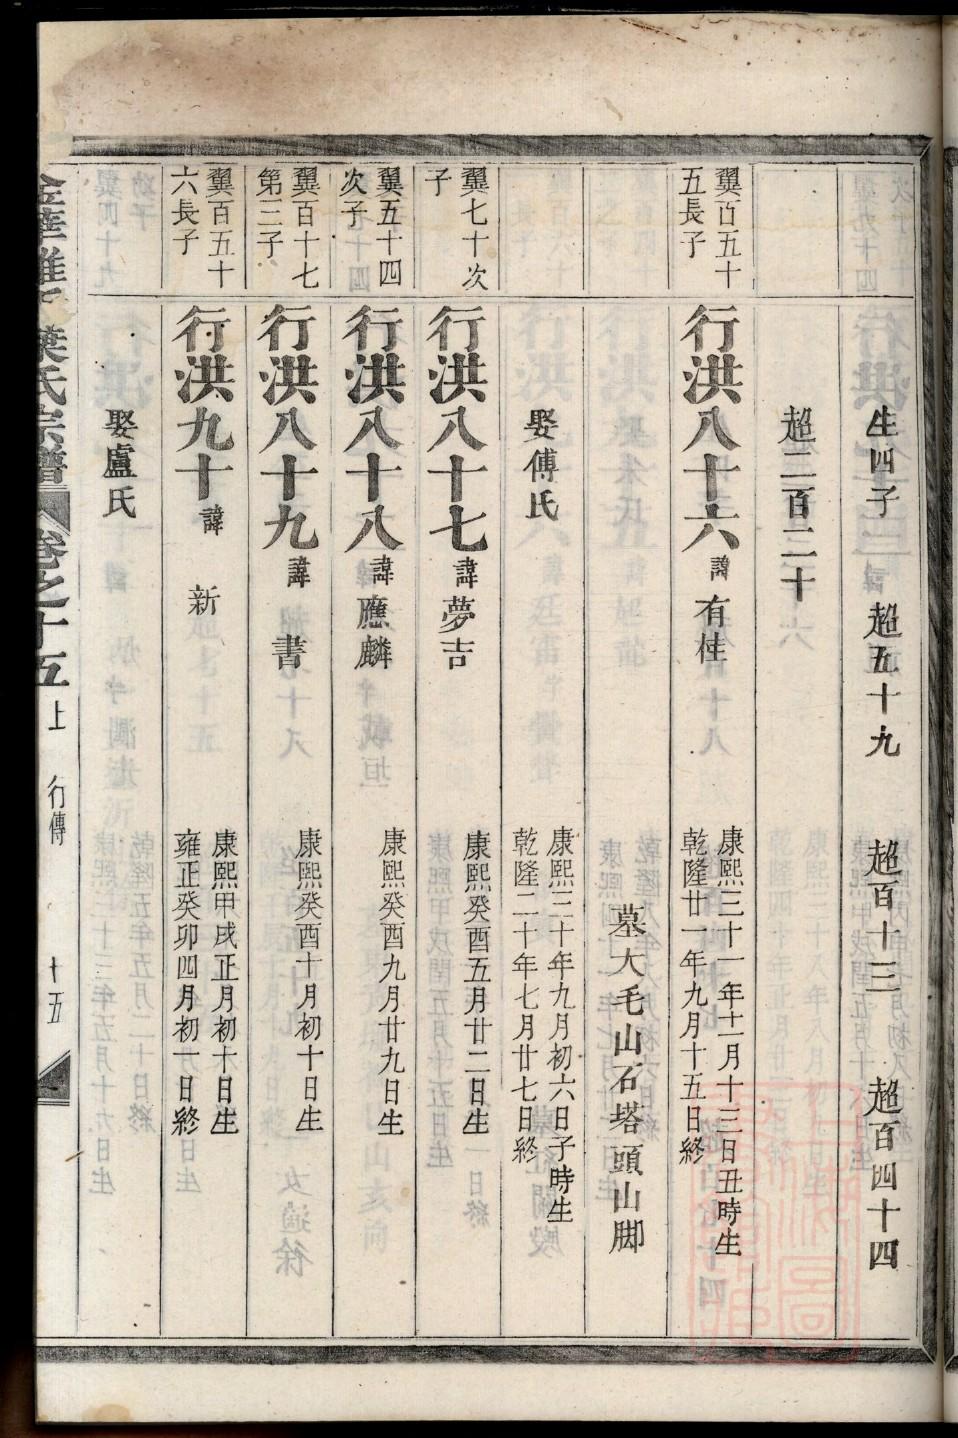 生四子 超五十九 超百十三 超百四十四
超二百二十
翼百五十五長子
行洪八十六 諱有桂 康熙三十一年十一月十三日丑時生
乾隆廿一年九月十五日終
墓大毛山石塔頭山脚
娶傅氏 康熙三十年九月初六日子時生
乾隆二十年七月廿七日終
翼七十次子
行洪八十七 諱夢吉 康熙癸酉五月廿二日生
翼五十四次子
行洪八十八 諱應麟 康熙癸酉九月廿九日生
翼百十七第三子
行洪八十九 諱書 康熙癸酉十月初十日生
翼百五十六長子
行洪九十 諱新 康熙甲戌正月初十日生
雍正癸卯四月初一日終
娶盧氏
葉氏宗譜 卷之十五上 行傳 十五